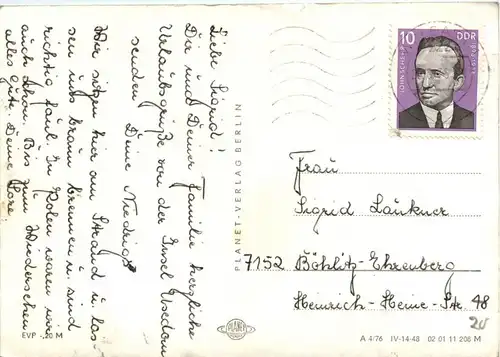 Liebe Sigrid!
Dir und Deiner Familie herzliche
Urlaubsgrüße von der Insel Usedom
senden Deine
Wir sitzen hier am Strand u. las-
sen uns braun brennen u. sind
richtig faul. In Polen waren wir
auch schon. Bis zum Wiedersehen
alles Gute. Deine
EVP M
PLANET-VERLAG BERLIN
PLANET
10
DDR
JOHN SCHEHR
Frau
Sigrid Läukner
7152 Böhlitz-Ehrenberg
Heinrich-Heine-Str. 48
20
A 4/76 IV-14-48 02 01 11 208 M